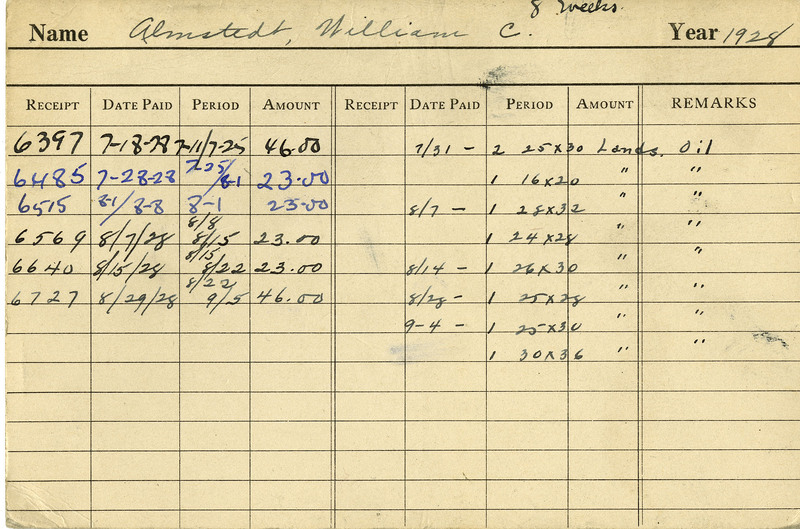 8 weeks.
Name Almstedt, William C. Year 1928
RECEIPT DATE PAID PERIOD AMOUNT RECEIPT DATE PAID PERIOD AMOUNT REMARKS
6397 7-18-28 7-11/7-25 46.00 7/31 - 2 25x30 Lands. Oil
6485 7-28-28 7-25/8-1 23.00 1 16x20 " "
6515 8-1/8-8 8-1 23.00 8/7 - 1 28x32 " "
6569 8/7/28 8/8 8/15 23.00 1 24x28 " "
6640 8/15/28 8/15 8/22 23.00 8/14 - 1 26x30 " "
6727 8/29/28 8/22 9/5 46.00 8/28 - 1 25x28 " "
9-4 - 1 25x30 " "
1 30x36 " "